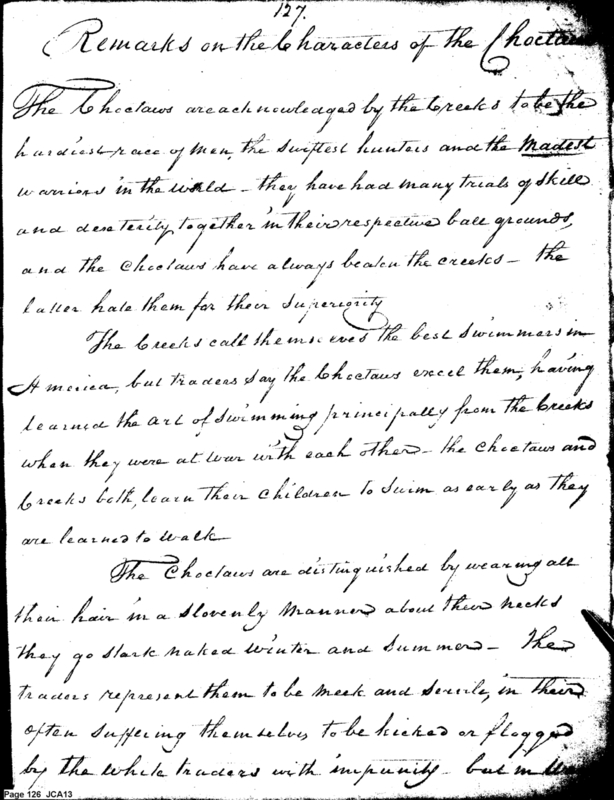 127.
Remarks on the Characters of the Choctaws
The Choctaws are acknowledged by the Creeks to be the
hardiest race of men, the swiftest hunters and the madest
warriors in the world - they have had many trials of skill
and dexterity, together in their respective ball grounds,
and the Choctaws have always beaten the creeks - the
latter hate them for their superiority
The Creeks call themselves the best swimmers in
America, but traders say the Choctaws excel them, having
learned the art of swimming principally from the Creeks
when they were at war with each other - the Choctaws and
Creeks both, learn their children to swim as early as they
are learned to walk
The Choctaws are distinguished by wearing all
their hair in a slovenly manner about their necks
they go stark naked winter and summer - The
traders represent them to be meek and servile, in their
often suffering themselves to be kicked or flogged
by the White traders with impunity - but in
Page 126 JCA13